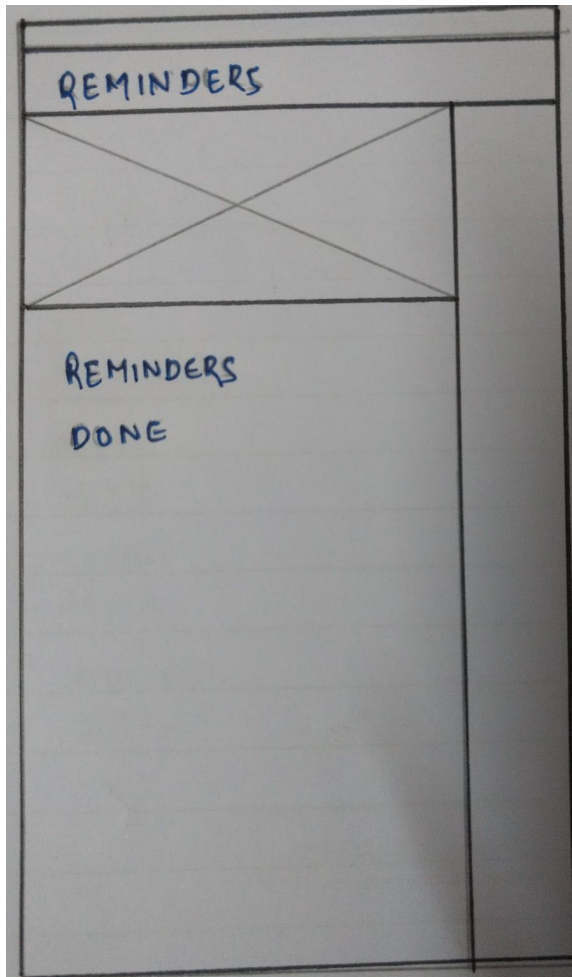 REMINDERS
REMINDERS
DONE